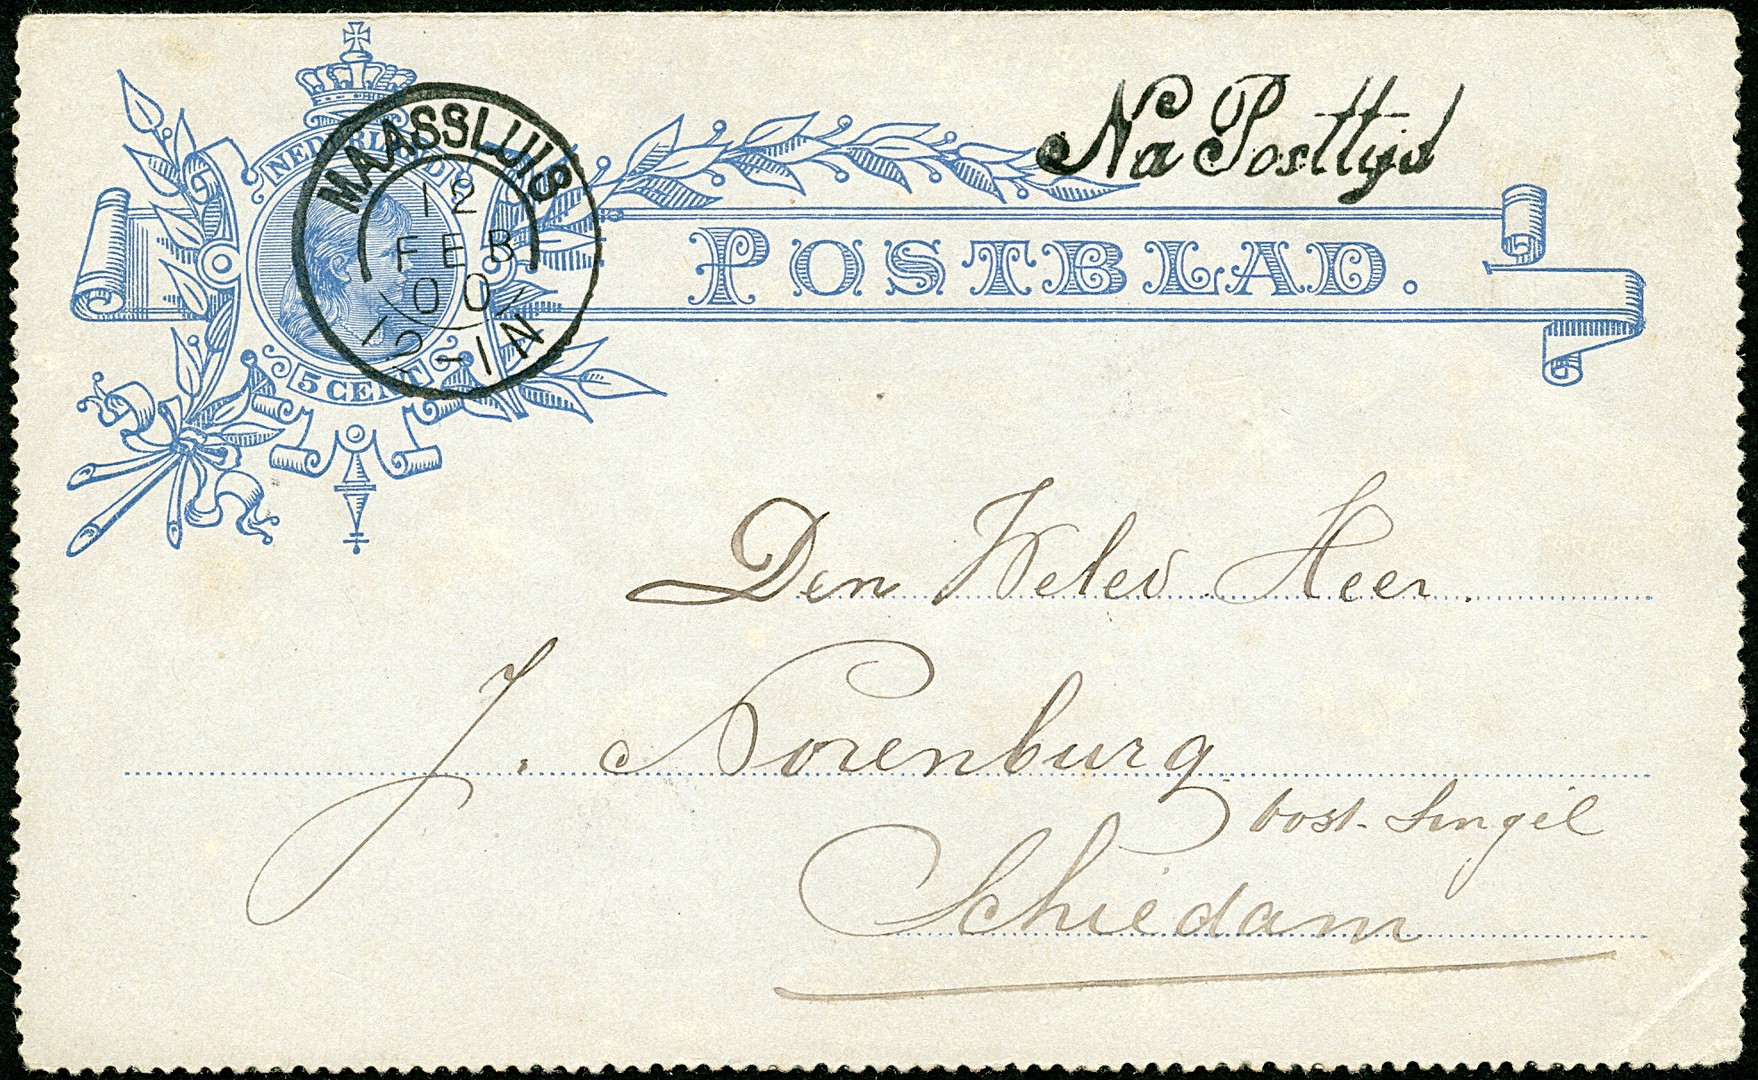 NEDERLAND
MAASSLUIS
12
FEB
00
-1N
5 CENT
Na Posttijd
POSTBLAD.
Den WelEd Heer
J. Norenburg
oost-Singel
Schiedam